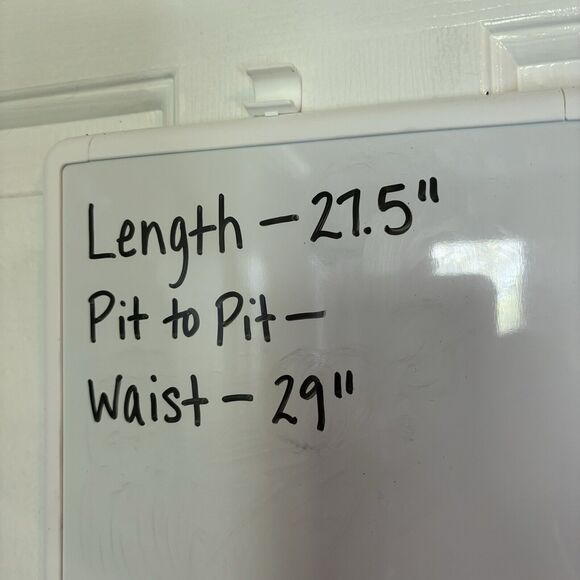 Length - 27.5"
Pit to Pit -
Waist - 29"